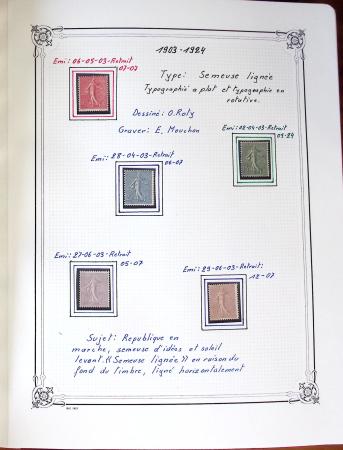 1903-1924
Emi: 06-05-03-Retrait
07-07
Type: Semeuse lignée
Typographié a plat et typographie en
rotative.
Dessiné: O.Roty
Graver: E. Mouchon
Emi: 02-04-03-Retrait
09-24
Emi: 28-04-03-Retrait
06-07
Emi: 27-06-03-Retrait
05-07
Emi: 29-06-03-Retrait:
12-07
Sujet: Republique en
marche, semeuse d'idées et soleil
levant. "Semeuse lignée" en raison du
fond du timbre, ligné horizontalement